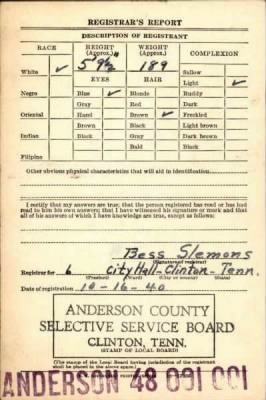 REGISTRAR'S REPORT
DESCRIPTION OF REGISTRANT
RACE HEIGHT (Approx.) WEIGHT (Approx.) COMPLEXION
5' 9½" 189
White ✓ Sallow
EYES HAIR Light ✓
Negro Blue ✓ Blonde Ruddy
Gray Red Dark
Oriental Hazel Brown ✓ Freckled
Brown Black Light brown
Indian Black Gray Dark brown
Bald Black
Filipino
Other obvious physical characteristics that will aid in identification
I certify that my answers are true; that the person registered has read or has had
read to him his own answers; that I have witnessed his signature or mark and that
all of his answers of which I have knowledge are true, except as follows:
Bess Slemons
(Signature of registrar)
Registrar for 6 City Hall - Clinton - Tenn.
(Precinct) (Ward) (City or county) (State)
Date of registration 10-16-40
ANDERSON COUNTY
SELECTIVE SERVICE BOARD
CLINTON, TENN.
(STAMP OF LOCAL BOARD)
(The stamp of the Local Board having jurisdiction of the registrant
shall be placed in the above space.)
ANDERSON 48 001 001